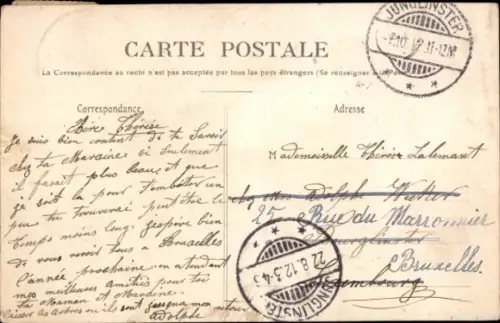 CARTE POSTALE
La Correspondance au recto n'est pas acceptée par tous les pays étrangers (Se renseigner
Correspondance
Adresse
JUNGLINSTER
Chère Thérèse
Je suis bien content de te savoir
chez ta Marraine si seulement
il faisait plus beau, et que
je sois là pour t'embêter un
peu tu trouverais peut être le
temps moins long. J'espère bien
de vous revoir tous à Bruxelles
l'année prochaine en attendant
mes meilleures amitiés pour toi
ta Maman et Marraine.
mon retour
Adolphe
Mademoiselle Thérèse Lalemant
chez Adolphe Welter
25 Rue du Marronnier
Junglinster
Bruxelles.
Luxembourg
JUNGLINSTER
22.8.12.3-4